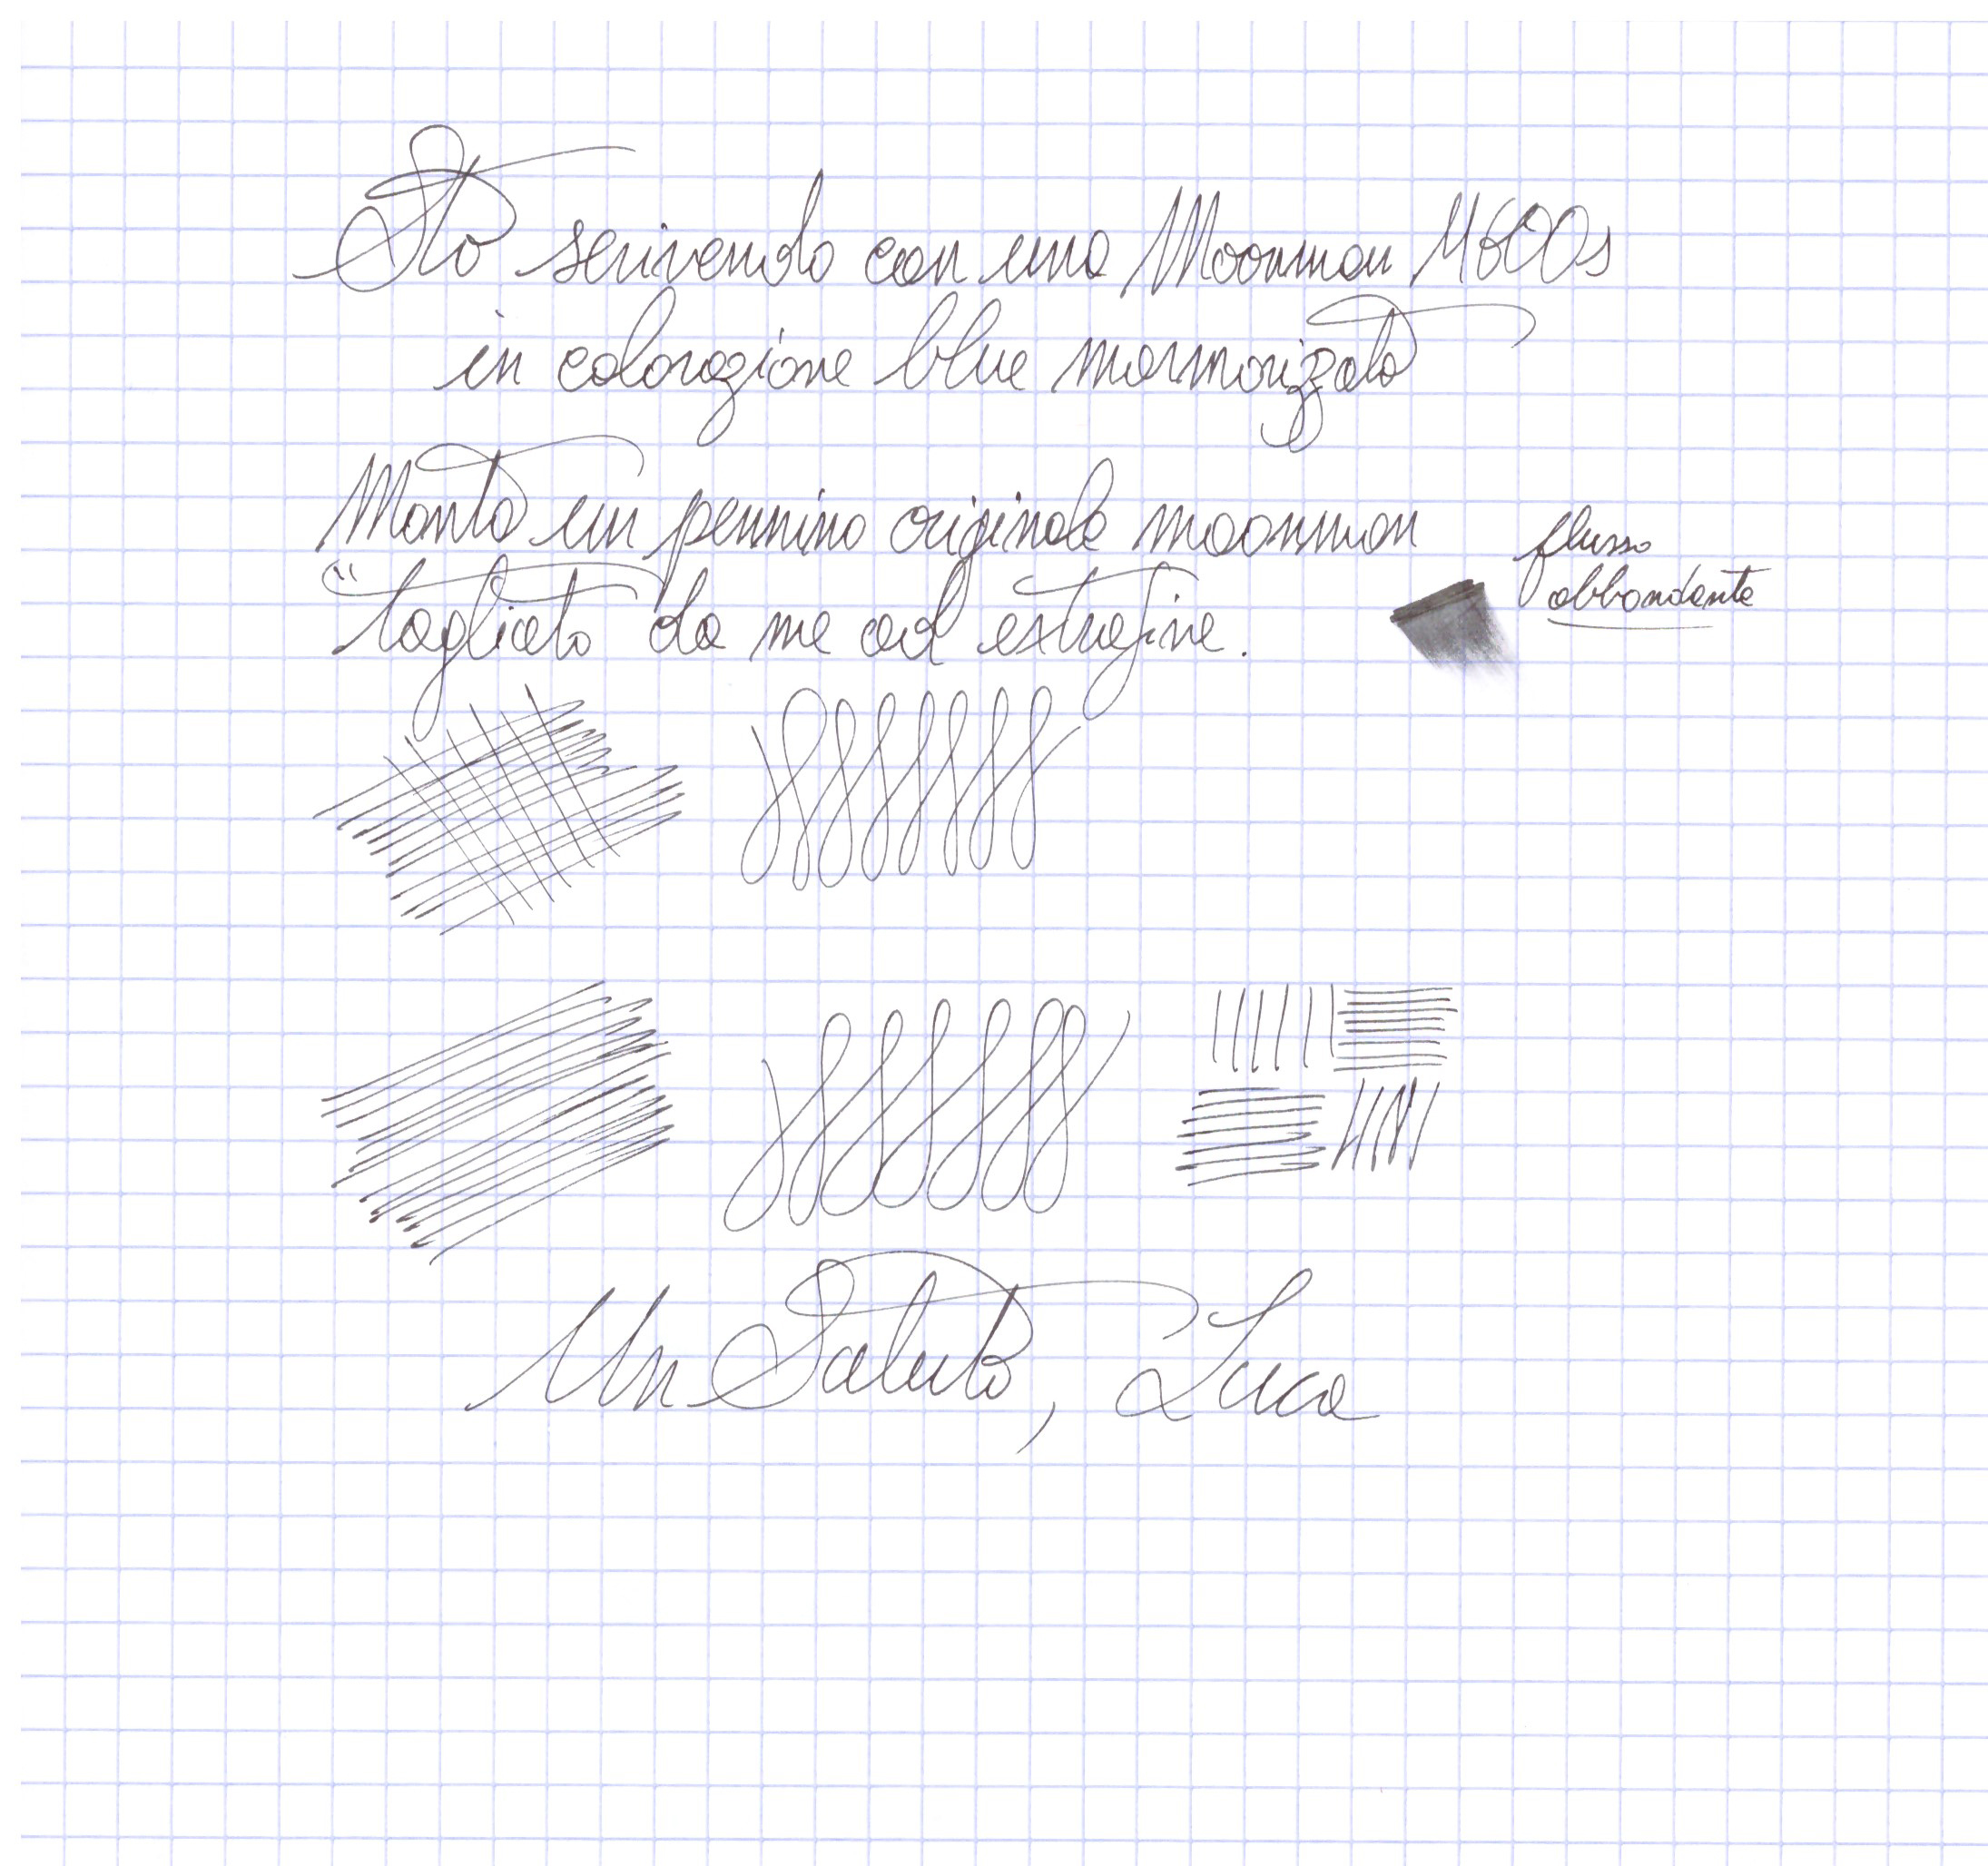 Sto scrivendo con una Moonman M600s
in colorazione blue marmorizzato
Monta un pennino originale moonman
"tagliato da me ad extrafine.
flusso
abbondante
Un Saluto, Luca